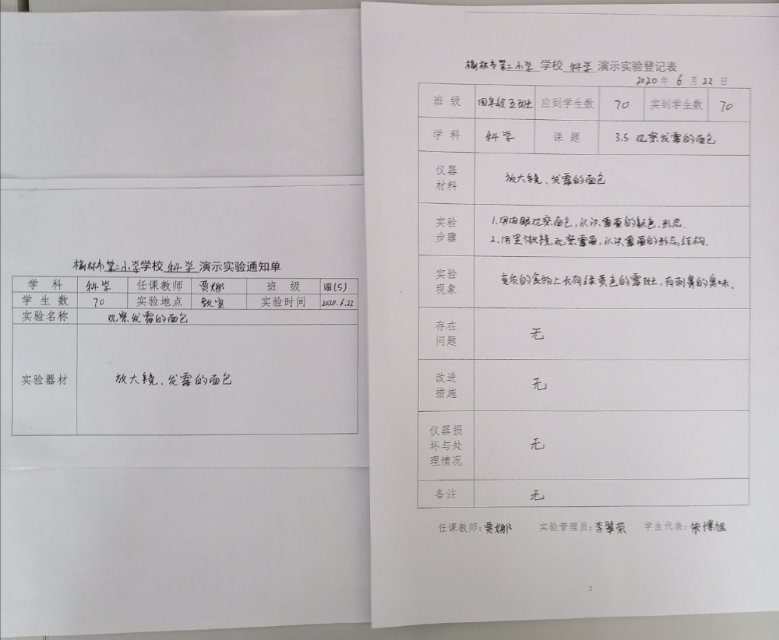 榆林市第二小学学校 科学 演示实验通知单
学 科 科学 任课教师 贾娜 班 级 四(5)
学 生 数 70 实验地点 教室 实验时间 2020.6.22
实验名称 观察发霉的面包
实验器材 放大镜、发霉的面包
榆林市第二小学 学校 科学 演示实验登记表
2020 年 6 月 22 日
班 级 四年级五班 应到学生数 70 实到学生数 70
学 科 科学 课 题 3.5 观察发霉的面包
仪器
材料 放大镜、发霉的面包
实验
步骤 1.用肉眼观察面包,认识霉菌的颜色、形态.
2.用显微镜观察霉菌,认识霉菌的形态,结构.
实验
现象 变质的食物上长有绿黄色的霉斑,有刺鼻的臭味.
存在
问题 无
改进
措施 无
仪器损
坏与处
理情况 无
备注 无
任课教师:贾娜 实验管理员:李翠荣 学生代表:朱博旭
2